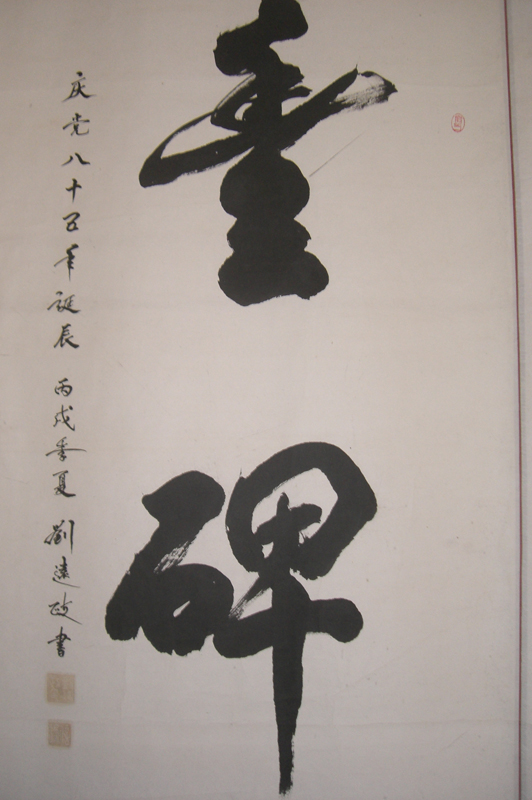 碑
庆党八十五年诞辰 丙戌季夏 劉遠政書